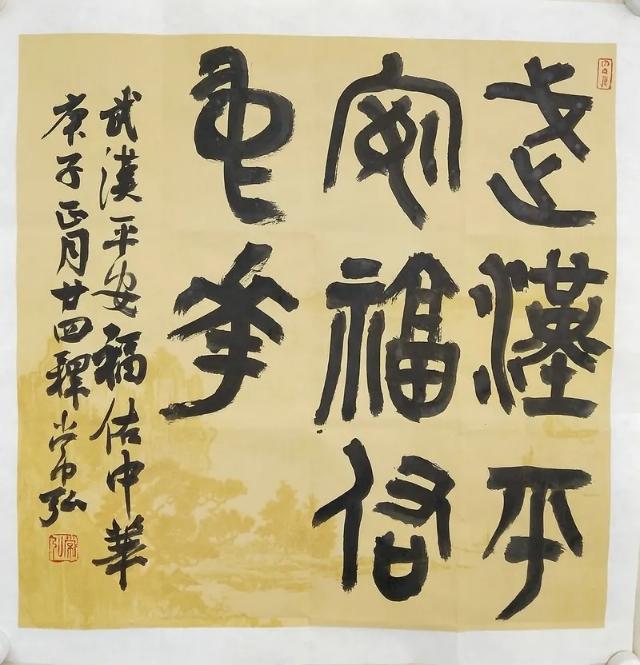 武漢平
安福佑
中華
武漢平安福佑中華
庚子正月廿四釋常弘